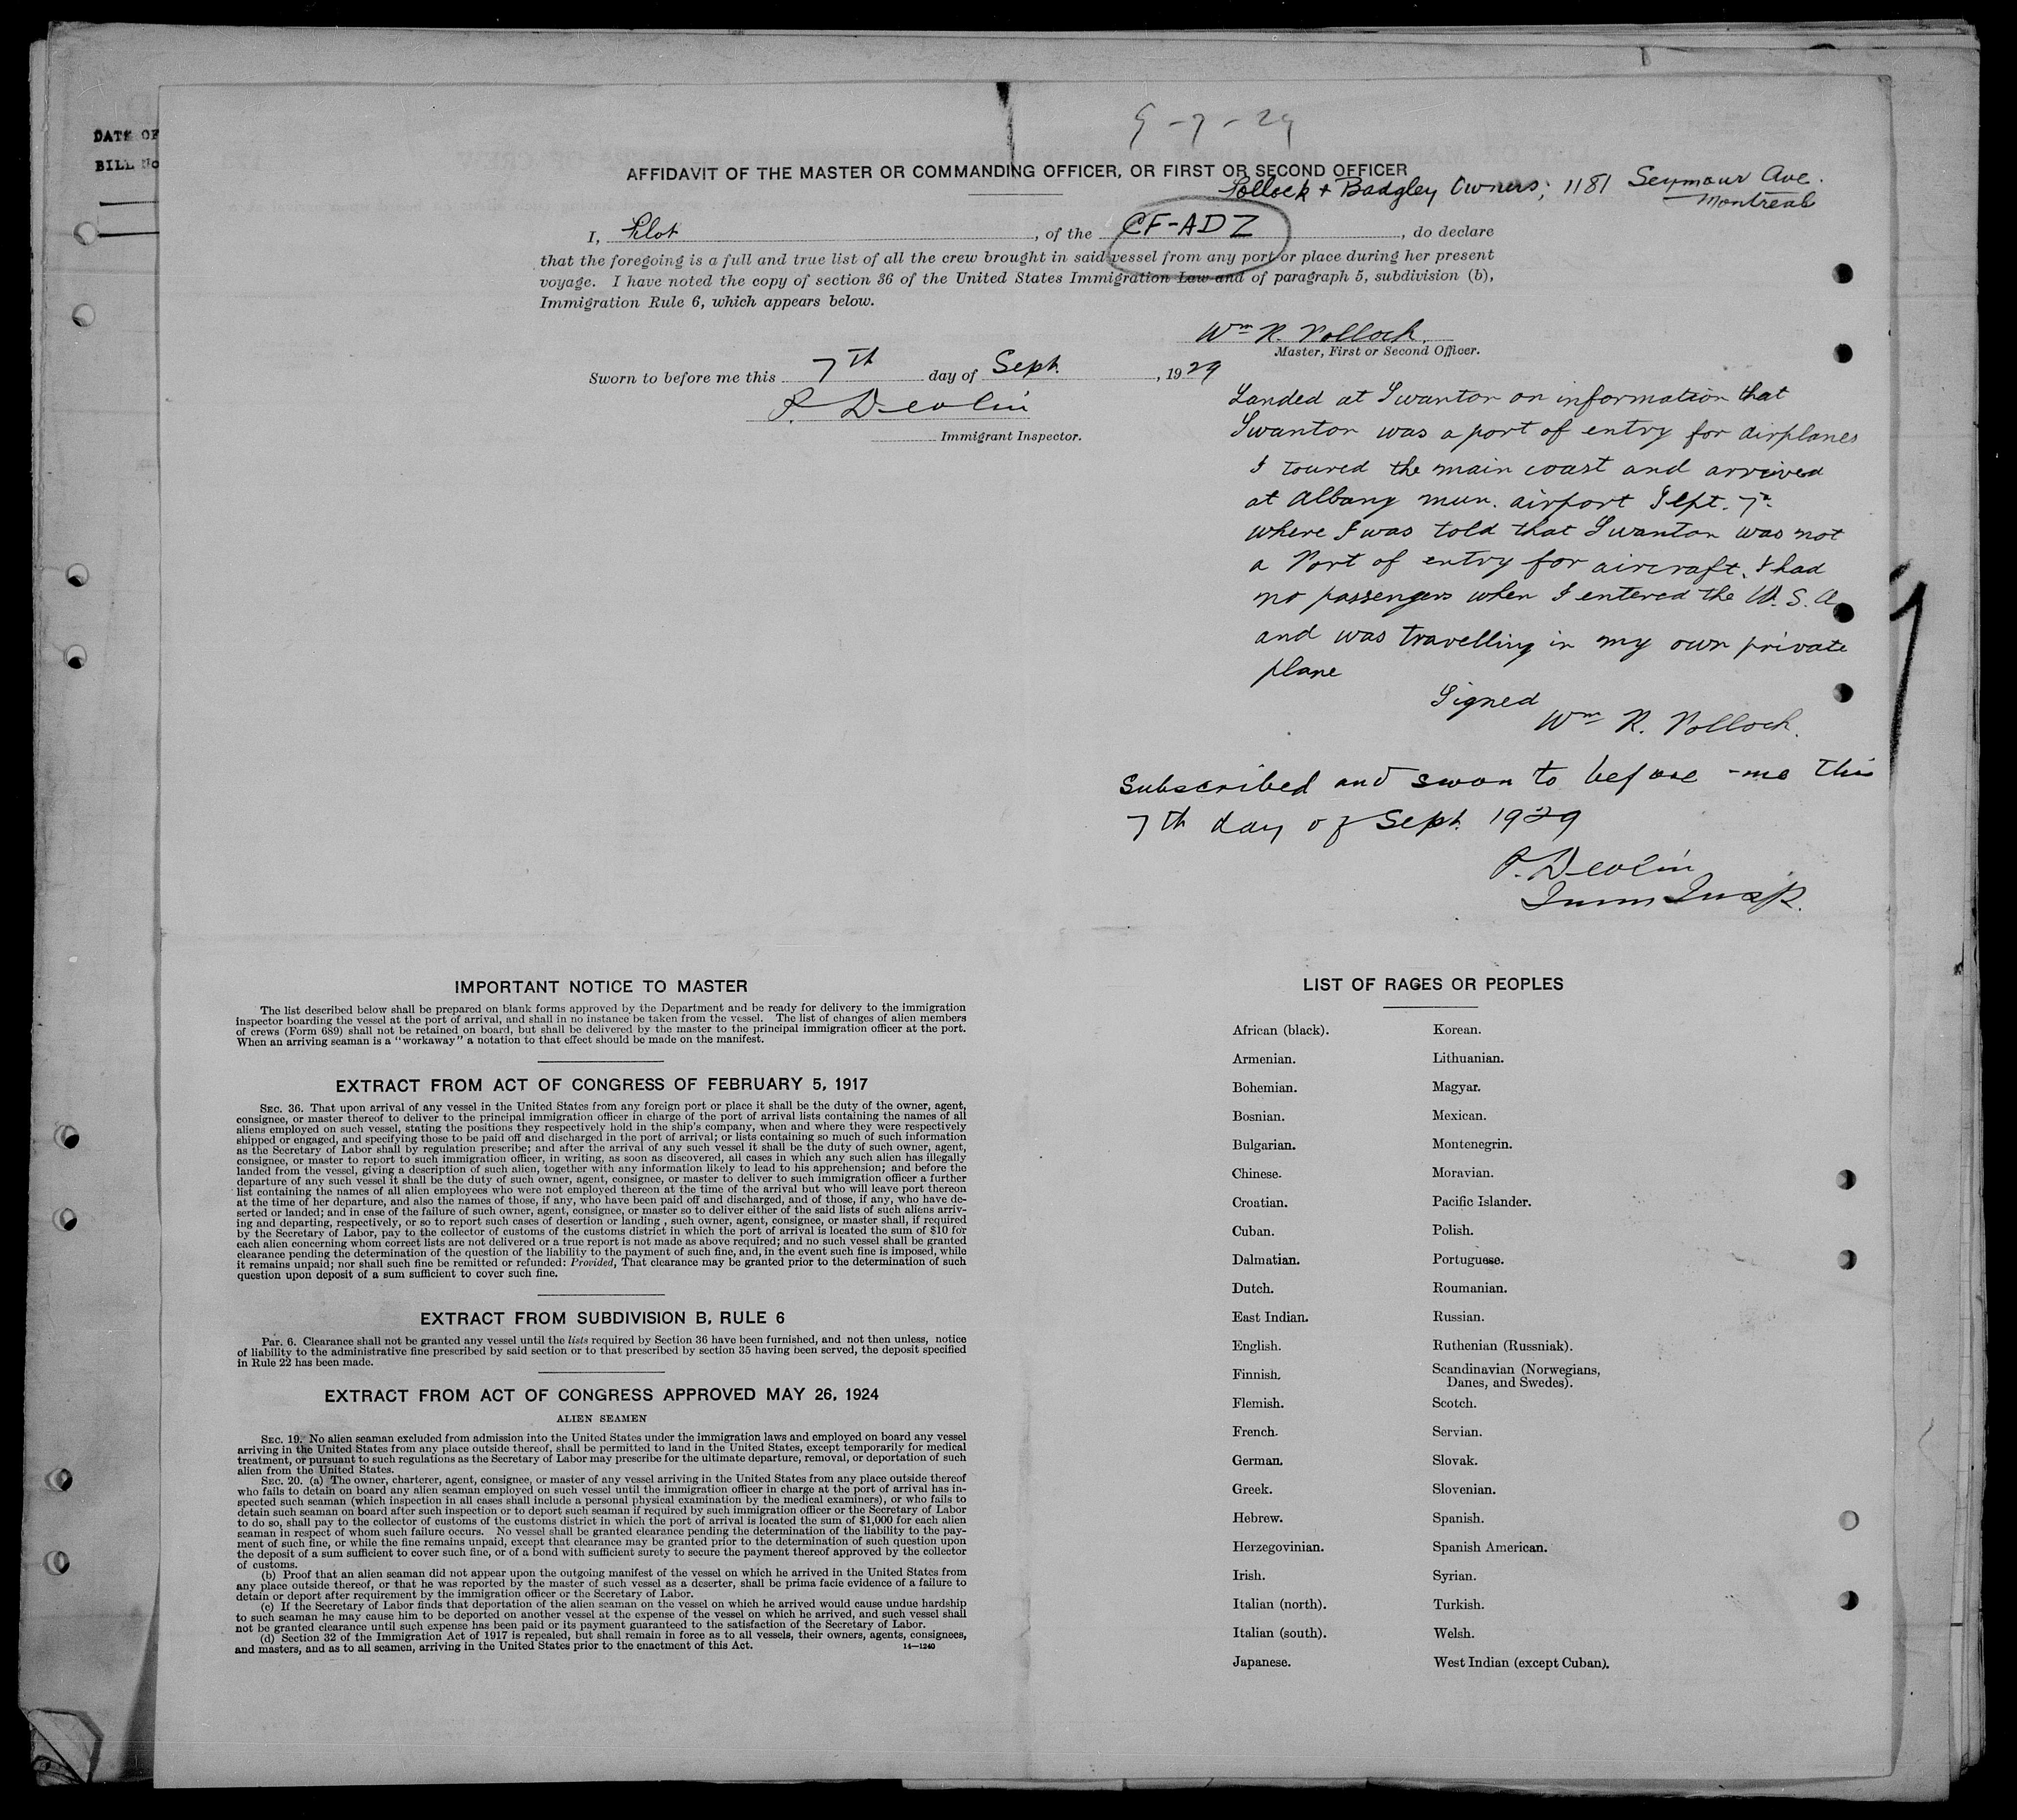 DATE OF
BILL No
9-7-29
AFFIDAVIT OF THE MASTER OR COMMANDING OFFICER, OR FIRST OR SECOND OFFICER
Pollock + Badgley Owners; 1181 Seymour Ave.
Montreal
I, Pilot, of the CF-ADZ, do declare
that the foregoing is a full and true list of all the crew brought in said vessel from any port or place during her present
voyage. I have noted the copy of section 36 of the United States Immigration Law and of paragraph 5, subdivision (b),
Immigration Rule 6, which appears below.
Wm R. Pollock.
Master, First or Second Officer.
Sworn to before me this 7th day of Sept., 1929
P. Devlin
Immigrant Inspector.
Landed at Swanton on information that
Swanton was a port of entry for airplanes
I toured the main coast and arrived
at Albany mun. airport Sept. 7th
where I was told that Swanton was not
a Port of entry for aircraft. I had
no passengers when I entered the U.S.A
and was travelling in my own private
plane
Signed
Wm R. Pollock.
Subscribed and swon to before me this
7th day of Sept. 1929
P. Devlin
Imm Insp.
IMPORTANT NOTICE TO MASTER
The list described below shall be prepared on blank forms approved by the Department and be ready for delivery to the immigration
inspector boarding the vessel at the port of arrival, and shall in no instance be taken from the vessel. The list of changes of alien members
of crews (Form 689) shall not be retained on board, but shall be delivered by the master to the principal immigration officer at the port.
When an arriving seaman is a "workaway" a notation to that effect should be made on the manifest.
EXTRACT FROM ACT OF CONGRESS OF FEBRUARY 5, 1917
SEC. 36. That upon arrival of any vessel in the United States from any foreign port or place it shall be the duty of the owner, agent,
consignee, or master thereof to deliver to the principal immigration officer in charge of the port of arrival lists containing the names of all
aliens employed on such vessel, stating the positions they respectively hold in the ship's company, when and where they were respectively
shipped or engaged, and specifying those to be paid off and discharged in the port of arrival; or lists containing so much of such information
as the Secretary of Labor shall by regulation prescribe; and after the arrival of any such vessel it shall be the duty of such owner, agent,
consignee, or master to report to such immigration officer, in writing, as soon as discovered, all cases in which any such alien has illegally
landed from the vessel, giving a description of such alien, together with any information likely to lead to his apprehension; and before the
departure of any such vessel it shall be the duty of such owner, agent, consignee, or master to deliver to such immigration officer a further
list containing the names of all alien employees who were not employed thereon at the time of the arrival but who will leave port thereon
at the time of her departure, and also the names of those, if any, who have been paid off and discharged, and of those, if any, who have de-
serted or landed; and in case of the failure of such owner, agent, consignee, or master so to deliver either of the said lists of such aliens arriv-
ing and departing, respectively, or so to report such cases of desertion or landing , such owner, agent, consignee, or master shall, if required
by the Secretary of Labor, pay to the collector of customs of the customs district in which the port of arrival is located the sum of $10 for
each alien concerning whom correct lists are not delivered or a true report is not made as above required; and no such vessel shall be granted
clearance pending the determination of the question of the liability to the payment of such fine, and, in the event such fine is imposed, while
it remains unpaid; nor shall such fine be remitted or refunded: Provided, That clearance may be granted prior to the determination of such
question upon deposit of a sum sufficient to cover such fine.
EXTRACT FROM SUBDIVISION B, RULE 6
Par. 6. Clearance shall not be granted any vessel until the lists required by Section 36 have been furnished, and not then unless, notice
of liability to the administrative fine prescribed by said section or to that prescribed by section 35 having been served, the deposit specified
in Rule 22 has been made.
EXTRACT FROM ACT OF CONGRESS APPROVED MAY 26, 1924
ALIEN SEAMEN
SEC. 19. No alien seaman excluded from admission into the United States under the immigration laws and employed on board any vessel
arriving in the United States from any place outside thereof, shall be permitted to land in the United States, except temporarily for medical
treatment, or pursuant to such regulations as the Secretary of Labor may prescribe for the ultimate departure, removal, or deportation of such
alien from the United States.
SEC. 20. (a) The owner, charterer, agent, consignee, or master of any vessel arriving in the United States from any place outside thereof
who fails to detain on board any alien seaman employed on such vessel until the immigration officer in charge at the port of arrival has in-
spected such seaman (which inspection in all cases shall include a personal physical examination by the medical examiners), or who fails to
detain such seaman on board after such inspection or to deport such seaman if required by such immigration officer or the Secretary of Labor
to do so, shall pay to the collector of customs of the customs district in which the port of arrival is located the sum of $1,000 for each alien
seaman in respect of whom such failure occurs. No vessel shall be granted clearance pending the determination of the liability to the pay-
ment of such fine, or while the fine remains unpaid, except that clearance may be granted prior to the determination of such question upon
the deposit of a sum sufficient to cover such fine, or of a bond with sufficient surety to secure the payment thereof approved by the collector
of customs.
(b) Proof that an alien seaman did not appear upon the outgoing manifest of the vessel on which he arrived in the United States from
any place outside thereof, or that he was reported by the master of such vessel as a deserter, shall be prima facie evidence of a failure to
detain or deport after requirement by the immigration officer or the Secretary of Labor.
(c) If the Secretary of Labor finds that deportation of the alien seaman on the vessel on which he arrived would cause undue hardship
to such seaman he may cause him to be deported on another vessel at the expense of the vessel on which he arrived, and such vessel shall
not be granted clearance until such expense has been paid or its payment guaranteed to the satisfaction of the Secretary of Labor.
(d) Section 32 of the Immigration Act of 1917 is repealed, but shall remain in force as to all vessels, their owners, agents, consignees,
and masters, and as to all seamen, arriving in the United States prior to the enactment of this Act.
14—1240
LIST OF RACES OR PEOPLES
African (black).
Armenian.
Bohemian.
Bosnian.
Bulgarian.
Chinese.
Croatian.
Cuban.
Dalmatian.
Dutch.
East Indian.
English.
Finnish.
Flemish.
French.
German.
Greek.
Hebrew.
Herzegovinian.
Irish.
Italian (north).
Italian (south).
Japanese.
Korean.
Lithuanian.
Magyar.
Mexican.
Montenegrin.
Moravian.
Pacific Islander.
Polish.
Portuguese.
Roumanian.
Russian.
Ruthenian (Russniak).
Scandinavian (Norwegians,
Danes, and Swedes).
Scotch.
Servian.
Slovak.
Slovenian.
Spanish.
Spanish American.
Syrian.
Turkish.
Welsh.
West Indian (except Cuban).